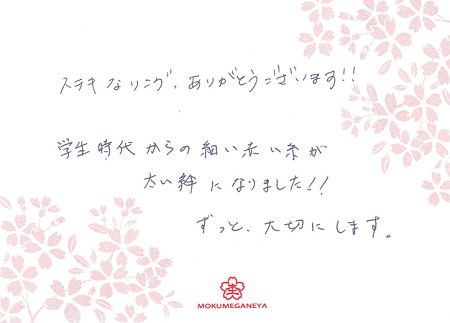 ステキなリング、ありがとうございます!!
学生時代からの細い赤い糸が
太い絆になりました!!
ずっと、大切にします。
MOKUMEGANEYA